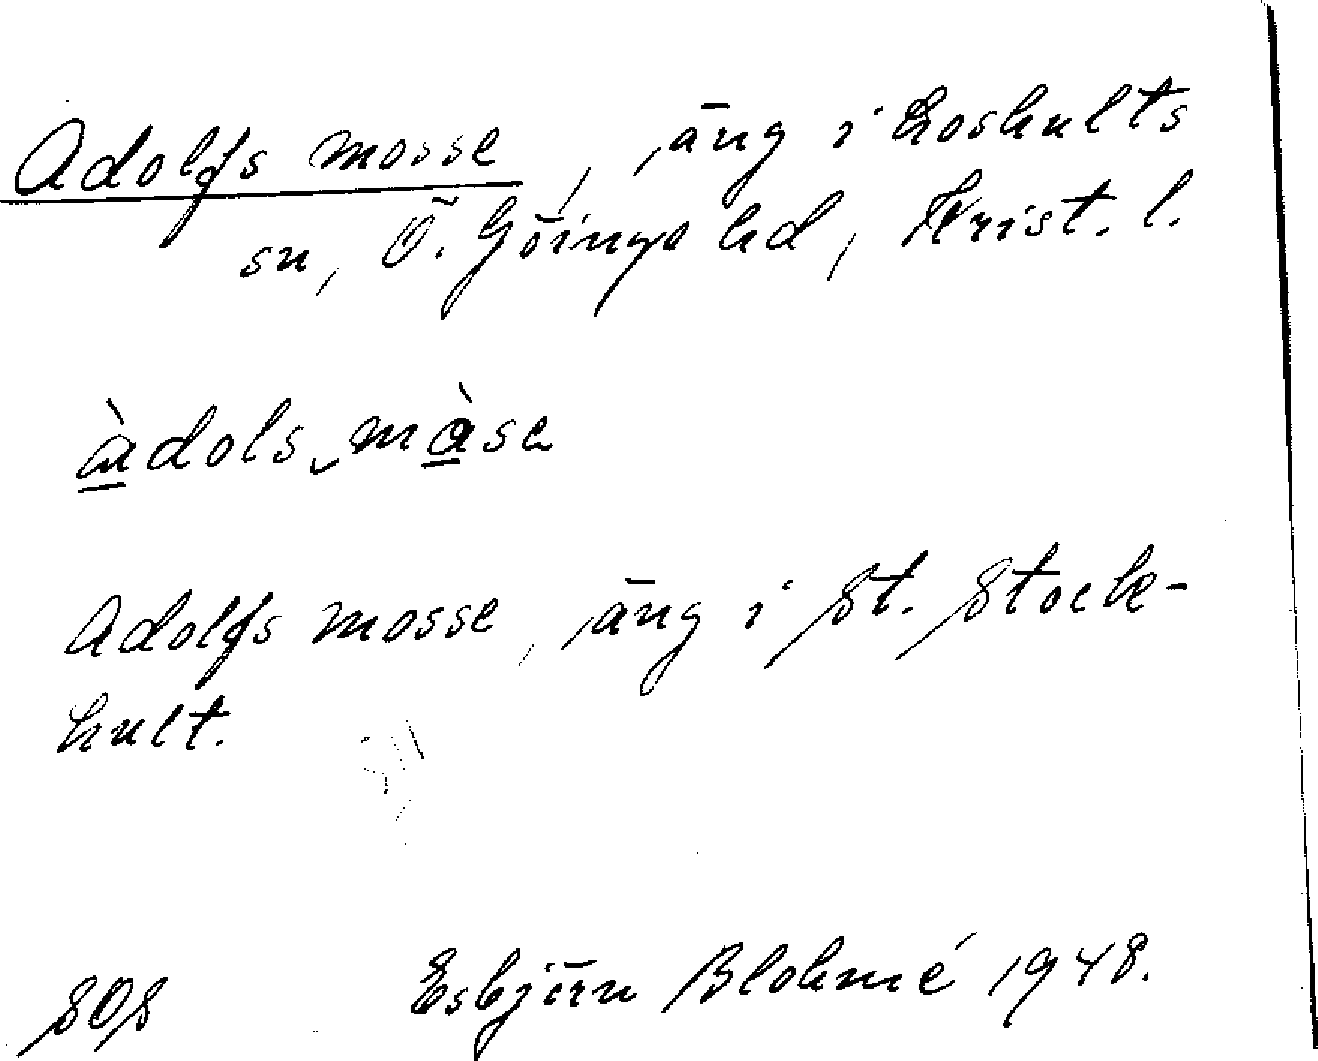 Adolfs mosse, äng i Loshults
sn, Ö. Göinge hd, Krist. l.
àdols màse
Adolfs mosse, äng i St. Stock-
hult.
SOS Esbjörn Blohmé 1948.